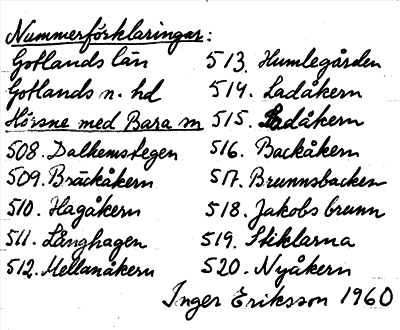 Nummerförklaringar:
Gotlands län
Gotlands n. hd
Hörsne med Bara m
508. Dalhemstegen
509. Bräckåkern
510. Hagåkern
511. Långhagen
512. Mellanåkern
513. Humlegården
514. Ladåkern
515. Ladåkern
516. Backåkern
517. Brunnsbacken
518. Jakobs brunn
519. Stiklarna
520. Nyåkern
Inger Eriksson 1960